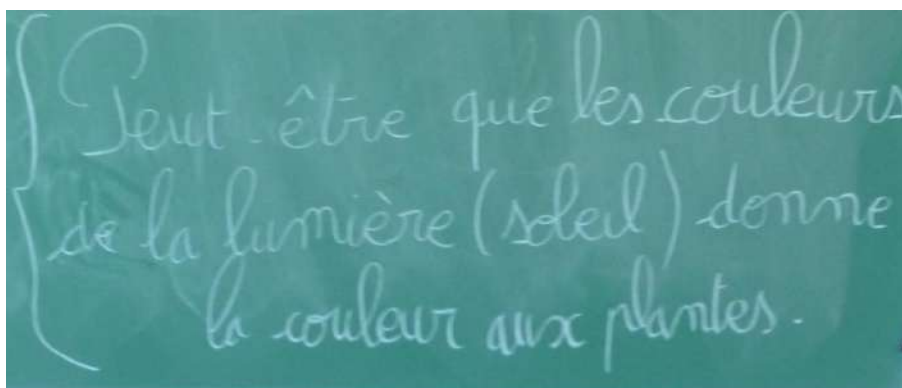 Peut-être que les couleurs
de la lumière (soleil) donne
la couleur aux plantes.